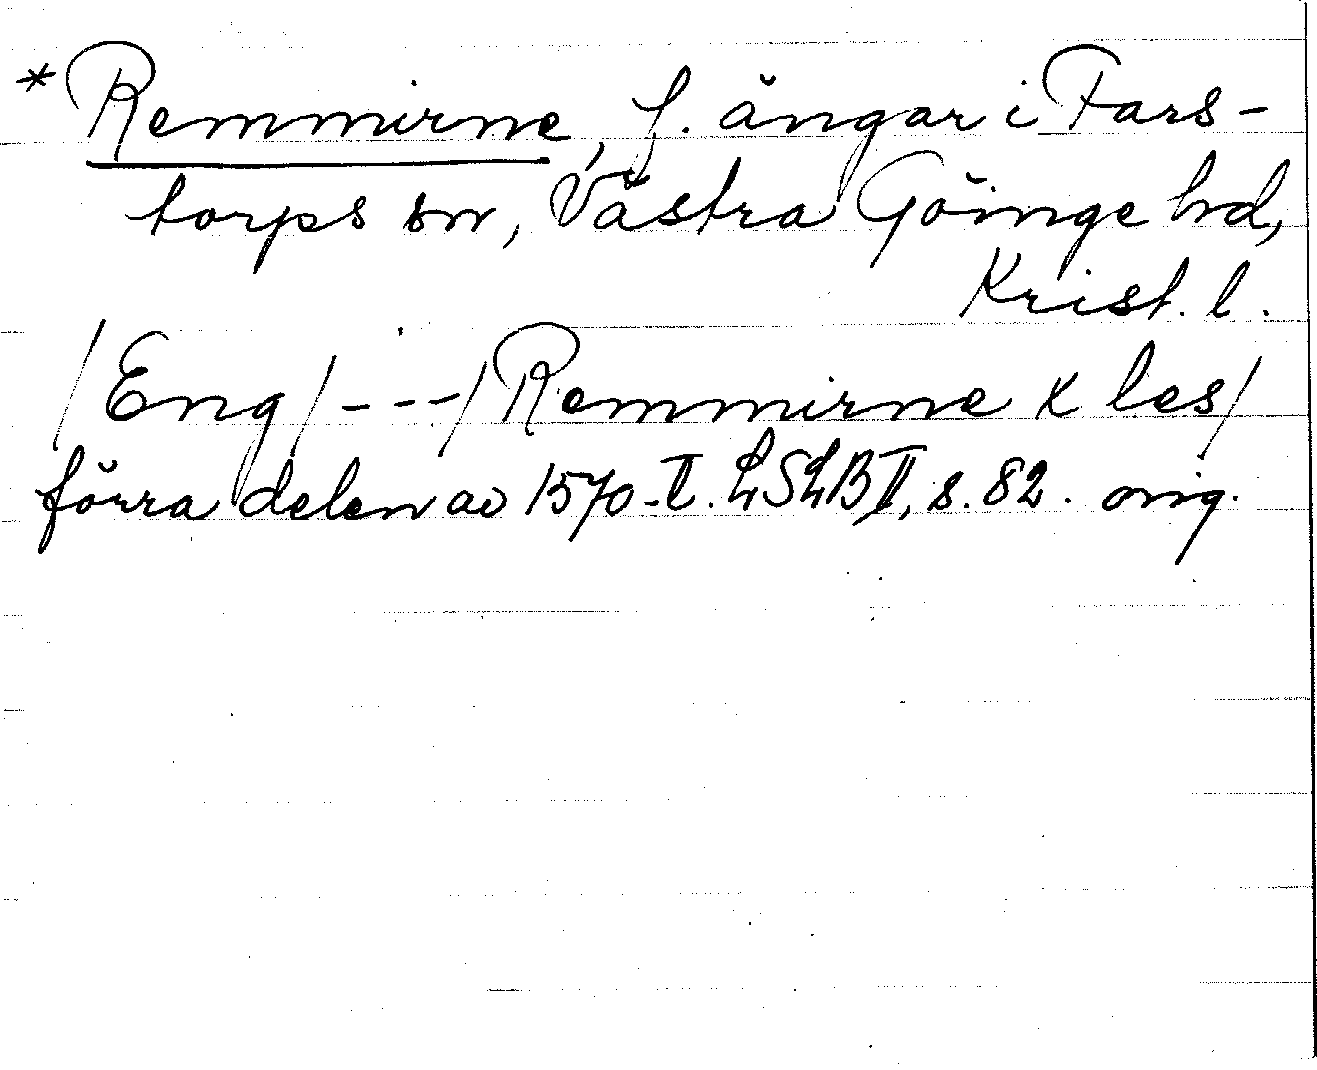 * Remmirne, f. ängar i Fars-
torps sn, Västra Göinge hd,
Krist. l.
/Eng/---/Remmirne x les/
förra delen av 1570-t. LSLB II, s. 82. orig.